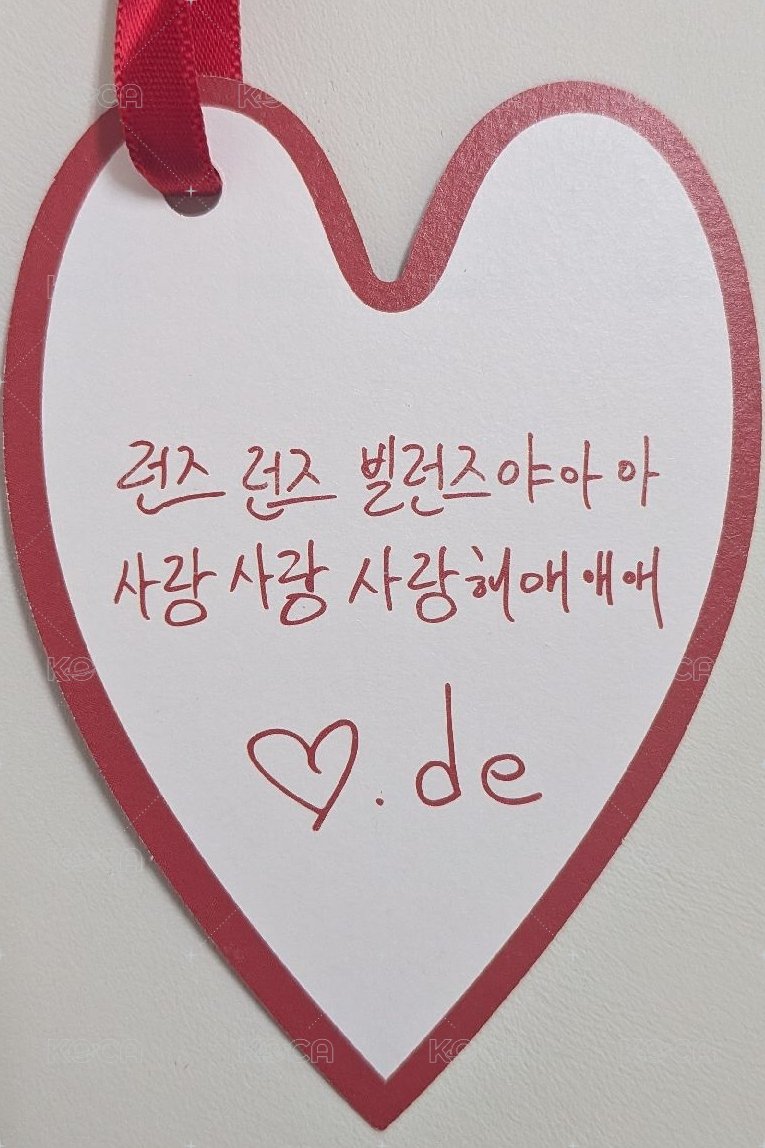 런즈 런즈 빌런즈야아 아
사랑 사랑 사랑해애 얘애
♡.de
KOCA